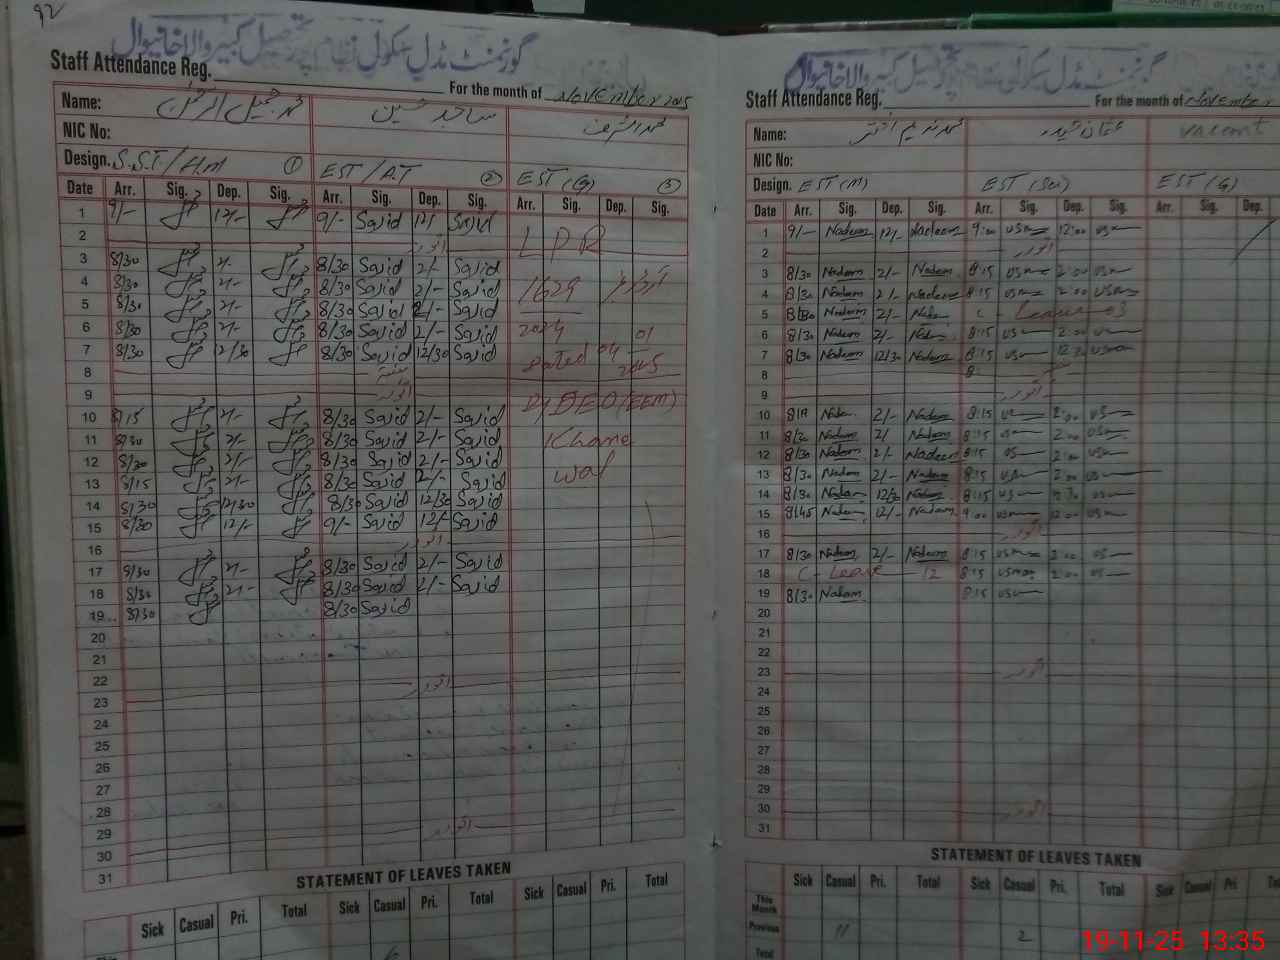 92
گورنمنٹ مڈل سکول
تحصیل کبیروالا خانیوال
Staff Attendance Reg.
For the month of November 2025
Name: ساجد حسین محمد اشرف
NIC No:
Design. S.S.T/H.M 1 EST/A.T 2 EST (G) 3
Date Arr. Sig. Dep. Sig. Arr. Sig. Dep. Sig. Arr. Sig. Dep. Sig.
1 9/- 12/- 9/- Sajid 12/- Sajid
2 اتوار LPR
3 8/30 2/- 8/30 Sajid 2/- Sajid
4 8/30 2/- 8/30 Sajid 2/- Sajid 1629 آرڈر نمبر
5 8/30 2/- 8/30 Sajid 2/- Sajid
6 8/30 2/- 8/30 Sajid 2/- Sajid
7 8/30 12/30 8/30 Sajid 12/30 Sajid Dated 2025
8 ہفتہ
9 اتوار Dy DEO (EEM)
10 8/15 2/- 8/30 Sajid 2/- Sajid
11 8/30 2/- 8/30 Sajid 2/- Sajid Khane
12 8/30 2/- 8/30 Sajid 2/- Sajid wal
13 8/15 2/- 8/30 Sajid 2/- Sajid
14 8/30 12/30 8/30 Sajid 12/30 Sajid
15 8/30 12/- 9/- Sajid 12/- Sajid
16 اتوار
17 8/30 2/- 8/30 Sajid 2/- Sajid
18 8/30 2/- 8/30 Sajid 2/- Sajid
19 8/30 8/30 Sajid
20
21
22
23 اتوار
24
25
26
27
28
29
30 اتوار
31
STATEMENT OF LEAVES TAKEN
Sick Casual Pri. Total Sick Casual Pri. Total Sick Casual Pri. Total
گورنمنٹ مڈل سکول
کبیروالا خانیوال
Staff Attendance Reg.
For the month of November
Name: محمد ندیم اختر عثمان حیدر vacant
NIC No:
Design. EST (M) EST (Sci) EST (G)
Date Arr. Sig. Dep. Sig. Arr. Sig. Dep. Sig. Arr. Sig. Dep.
1 9/- Nadeem 12/- Nadeem 9:00 usm 12:00 usm
2 اتوار
3 8/30 Nadeem 2/- Nadeem 8:15 usm 2:00 usm
4 8/30 Nadeem 2/- Nadeem 8:15 usm 2:00 usm
5 8/30 Nadeem 2/- Nadeem C - Leave 03
6 8/30 Nadeem 2/- Nadeem 8:15 usm 2:00 usm
7 8/30 Nadeem 12/30 Nadeem 8:15 usm 12:30 usman
8 8:
9 اتوار
10 Nadeem 2/- Nadeem 8:15 us 2:00 usm
11 8/30 Nadeem 2/ Nadeem 8:15 usm 2:00 usm
12 8/30 Nadeem 2/- Nadeem 8:15 us 2:00 usm
13 8/30 Nadeem 2/- Nadeem 8:15 usm 2:00 usm
14 8/30 Nadeem 12/30 Nadeem 8:15 us usm
15 8/45 Nadeem 12/- Nadeem 9:00 usman 12:00 usm
16 اتوار
17 8/30 Nadeem 2/- Nadeem 8:15 usman 2:00 us
18 C - Leave 12 8:15 usman 2:00 us
19 8/30 Nadeem 8:15 usm
20
21
22
23 اتوار
24
25
26
27
28
29
30 اتوار
31
STATEMENT OF LEAVES TAKEN
Sick Casual Pri. Total Sick Casual Pri. Total Sick Casual Pri
This Month
Previous 11 2
Total
19-11-25 13:35